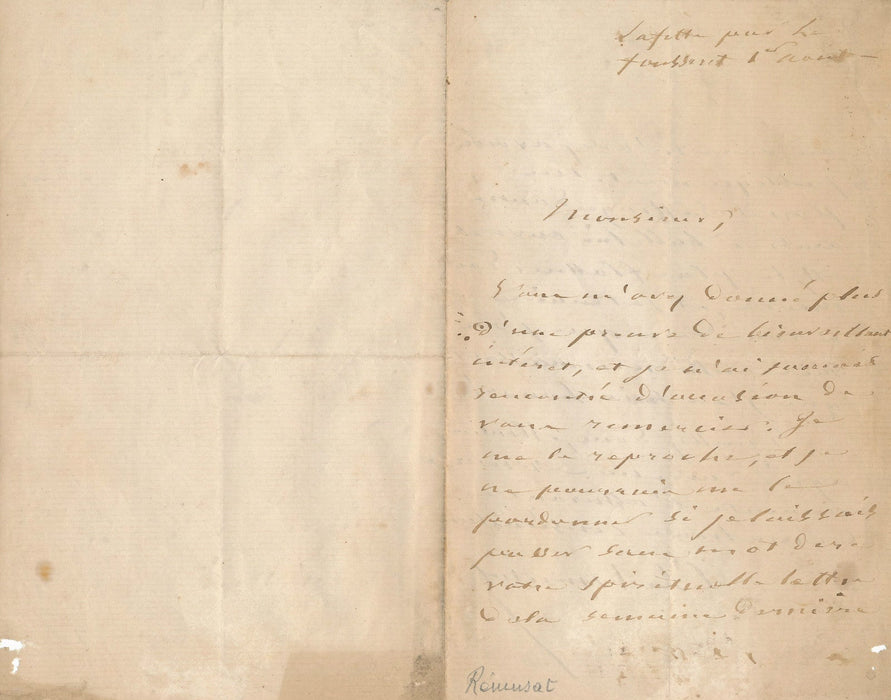 Lafitte par Le
Fousseret 1er août
Monsieur,
Vous m'avez donné plus
d'une preuve de bienveillant
intérêt, et je n'ai jamais
rencontré d'occasion de
vous remercier. Je
me le reproche, et je
ne pourrais me le
pardonner si je laissais
passer sans mot dire
votre spirituelle lettre
de la semaine dernière
Rémusat